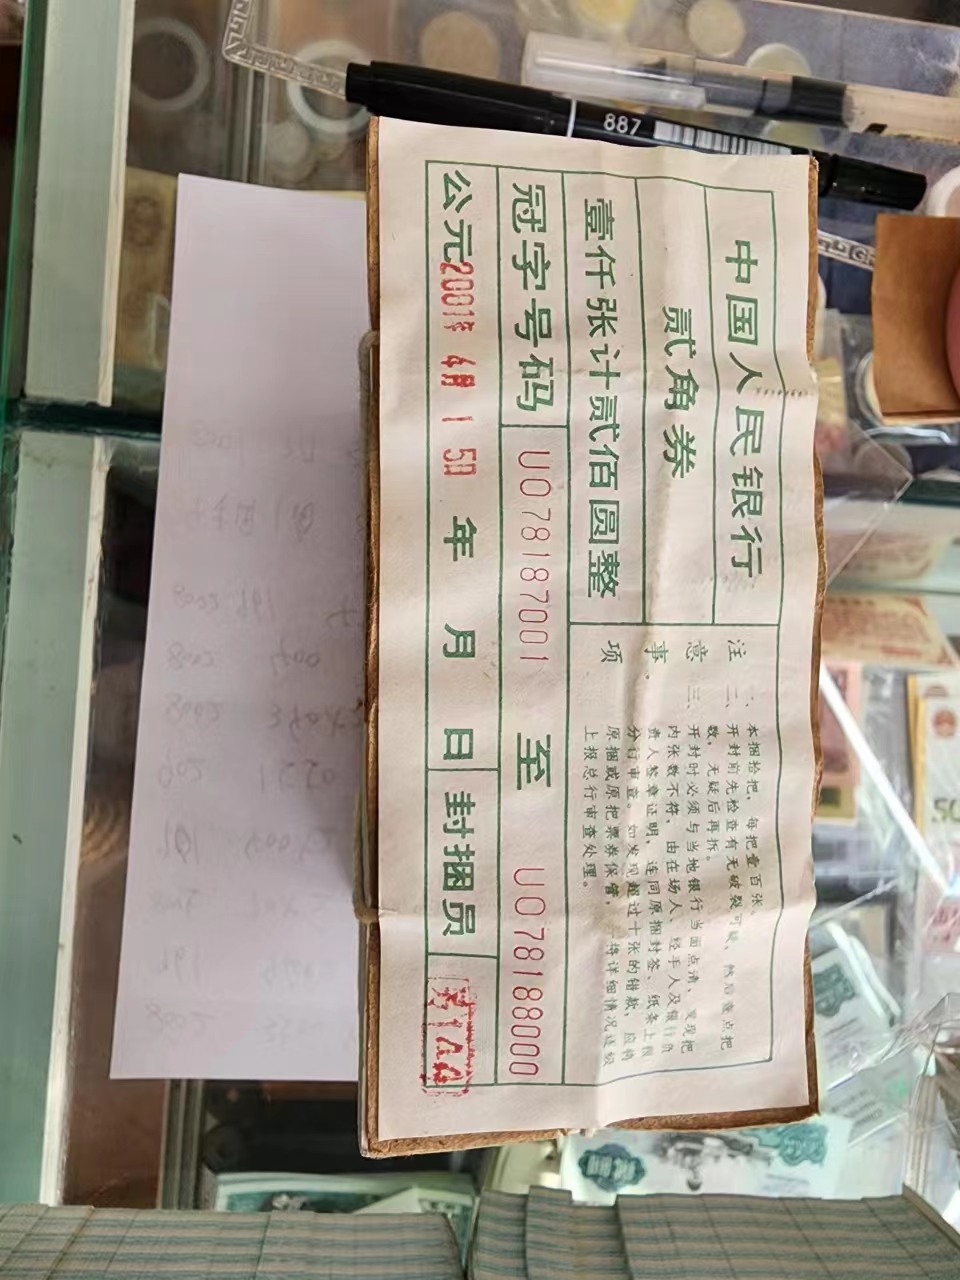 中国人民银行
贰角券
壹仟张计贰佰圆整
注意事项
一、本捆拾把，每把壹百张。
二、开封前先检查有无破裂可疑，然后查点把
数，无疑后再拆。
三、开封时必须与当地银行当面点清，发现把
内张数不符，由在场人、经手人及银行负
责人签章证明，连同原捆封签、纸条上报
分行审查。如发现超过十张的错款，应将
原捆或原把票券保管，将详细情况逐级
上报总行审查处理。
冠字号码 UO78187001 至 UO78188000
公元2001年4月15日 年 月 日 封捆员
887
50